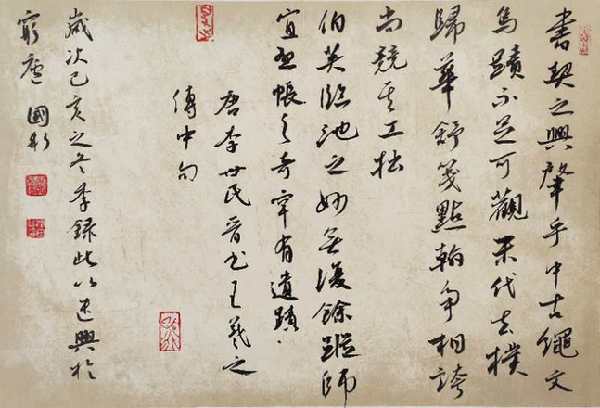 書契之興肇乎中古繩文
鳥蹟不足可觀末代去樸
歸華舒箋點翰爭相誇
尚競其工拙
伯英臨池之妙無復餘蹤師
宜懸帳之奇罕有遺蹟
唐李世民晉書王羲之
傳中句
歲次己亥之冬季錄此以興於
窮廬 國